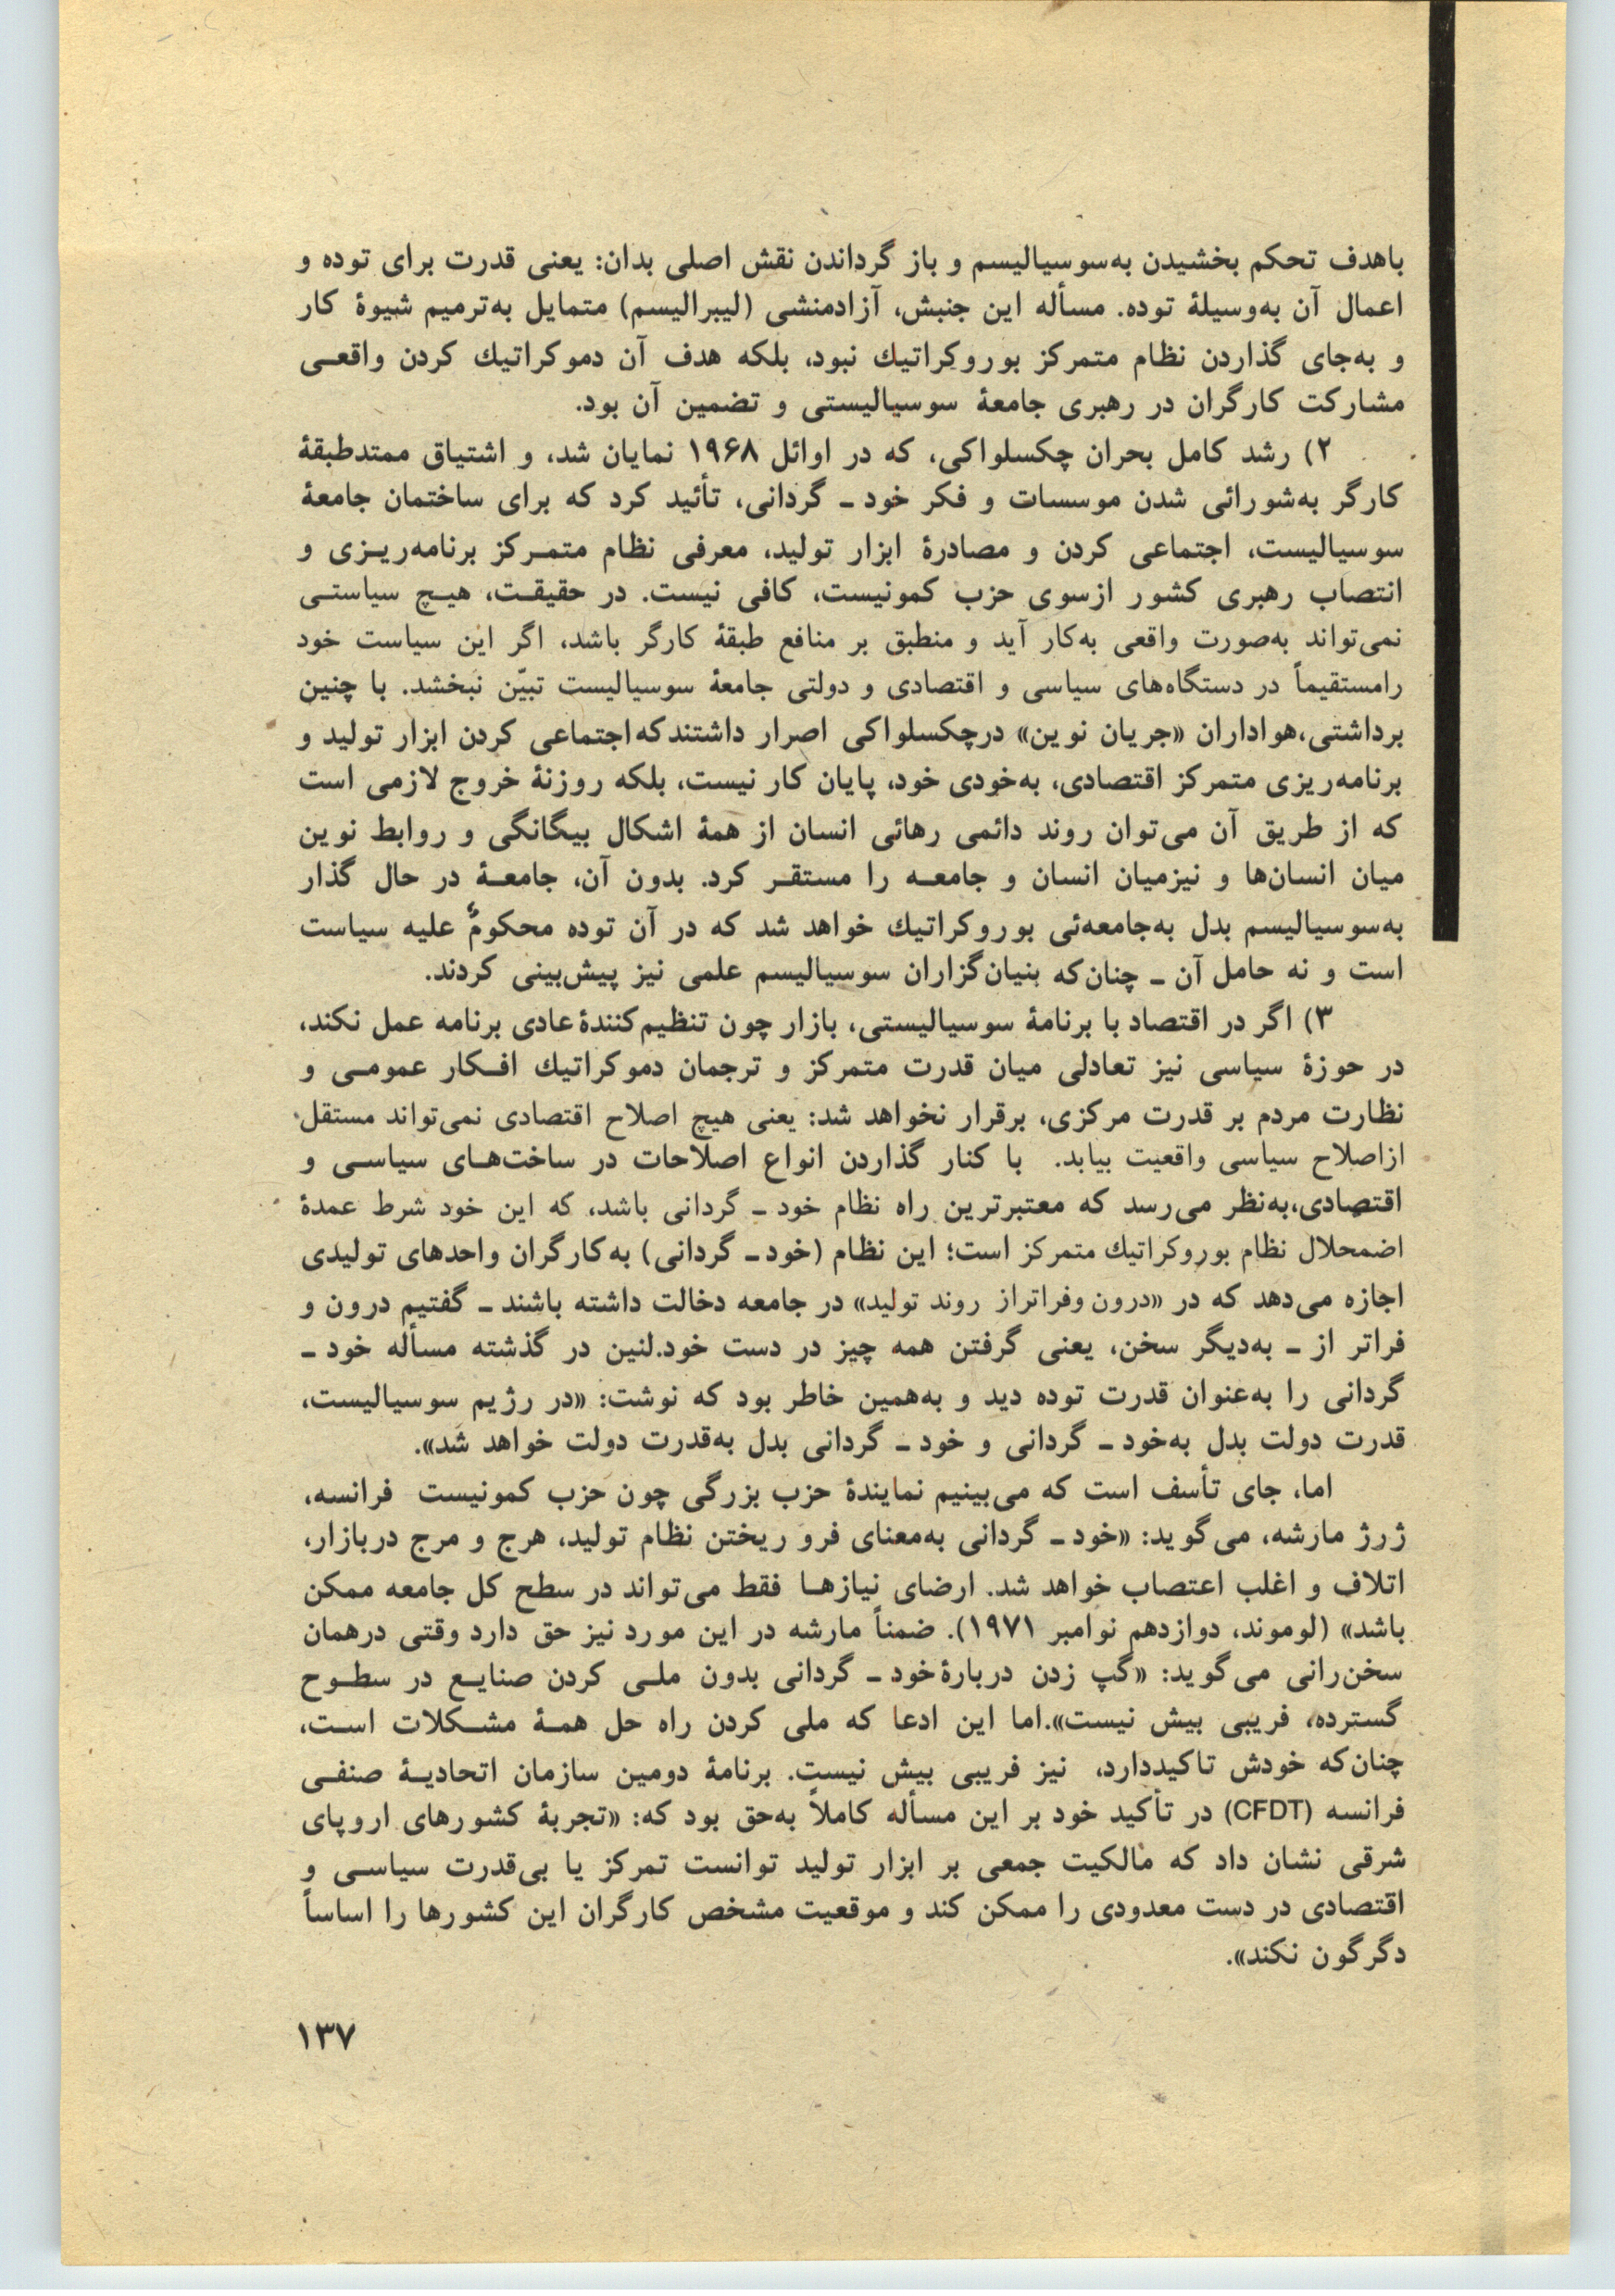 باهدف تحکم بخشیدن به‌سوسیالیسم و باز گرداندن نقش اصلی بدان: یعنی قدرت برای توده و
اعمال آن به‌وسیلهٔ توده. مسأله این جنبش، آزادمنشی (لیبرالیسم) متمایل به‌ترمیم شیوهٔ کار
و به‌جای گذاردن نظام متمرکز بوروکراتیك نبود، بلکه هدف آن دموکراتیك کردن واقعـی
مشارکت کارگران در رهبری جامعهٔ سوسیالیستی و تضمین آن بود.
۲) رشد کامل بحران چکسلواکی، که در اوائل ۱۹۶۸ نمایان شد، و اشتیاق ممتدطبقهٔ
کارگر به‌شورائی شدن موسسات و فکر خود ـ گردانی، تأئید کرد که برای ساختمان جامعهٔ
سوسیالیست، اجتماعی کردن و مصادرهٔ ابزار تولید، معرفی نظام متمـرکز برنامه‌ریـزی و
انتصاب رهبری کشور ازسوی حزب کمونیست، کافی نیست. در حقیقـت، هیـچ سیاستـی
نمی‌تواند به‌صورت واقعی به‌کار آید و منطبق بر منافع طبقهٔ کارگر باشد، اگر این سیاست خود
رامستقیماً در دستگاه‌های سیاسی و اقتصادی و دولتی جامعهٔ سوسیالیست تبیّن نبخشد. با چنین
برداشتی،هواداران «جریان نوین» درچکسلواکی اصرار داشتندکه‌اجتماعی کردن ابزار تولید و
برنامه‌ریزی متمرکز اقتصادی، به‌خودی خود، پایان کار نیست، بلکه روزنهٔ خروج لازمی است
که از طریق آن می‌توان روند دائمی رهائی انسان از همهٔ اشکال بیگانگی و روابط نوین
میان انسان‌ها و نیزمیان انسان و جامعـه را مستقـر کرد. بدون آن، جامعـهٔ در حال گذار
به‌سوسیالیسم بدل به‌جامعه‌ئی بوروکراتیك خواهد شد که در آن توده محکومٌ علیه سیاست
است و نه حامل آن ـ چنان‌که بنیان‌گزاران سوسیالیسم علمی نیز پیش‌بینی کردند.
۳) اگر در اقتصاد با برنامهٔ سوسیالیستی، بازار چون تنظیم‌کنندهٔ‌عادی برنامه عمل نکند،
در حوزهٔ سیاسی نیز تعادلی میان قدرت متمرکز و ترجمان دموکراتیك افـکار عمومـی و
نظارت مردم بر قدرت مرکزی، برقرار نخواهد شد: یعنی هیچ اصلاح اقتصادی نمی‌تواند مستقل
ازاصلاح سیاسی واقعیت بیابد. با کنار گذاردن انواع اصلاحات در ساخت‌هـای سیاسـی و
اقتصادی،به‌نظر می‌رسد که معتبرترین راه نظام خود ـ گردانی باشد، که این خود شرط عمدهٔ
اضمحلال نظام بوروکراتیك متمرکز است؛ این نظام (خود ـ گردانی) به‌کارگران واحدهای تولیدی
اجازه می‌دهد که در «درون وفراتراز روند تولید» در جامعه دخالت داشته باشند ـ گفتیم درون و
فراتر از ـ به‌دیگر سخن، یعنی گرفتن همه چیز در دست خود.لنین در گذشته مسأله خود ـ
گردانی را به‌عنوان قدرت توده دید و به‌همین خاطر بود که نوشت: «در رژیم سوسیالیست،
قدرت دولت بدل به‌خود ـ گردانی و خود ـ گردانی بدل به‌قدرت دولت خواهد شد».
اما، جای تأسف است که می‌بینیم نمایندهٔ حزب بزرگی چون حزب کمونیست فرانسه،
ژرژ مارشه، می‌گوید: «خود ـ گردانی به‌معنای فرو ریختن نظام تولید، هرج و مرج دربازار،
اتلاف و اغلب اعتصاب خواهد شد. ارضای نیازهـا فقط می‌تواند در سطح کل جامعه ممکن
باشد» (لوموند، دوازدهم نوامبر ۱۹۷۱). ضمناً مارشه در این مورد نیز حق دارد وقتی درهمان
سخن‌رانی می‌گوید: «گپ زدن دربارهٔ‌خود ـ گردانی بدون ملـی کردن صنایـع در سطـوح
گسترده، فریبی بیش نیست».اما این ادعا که ملی کردن راه حل همـهٔ مشـکلات اسـت،
چنان‌که خودش تاکیددارد، نیز فریبی بیش نیست. برنامهٔ دومین سازمان اتحادیـهٔ صنفـی
فرانسه (CFDT) در تأکید خود بر این مسأله کاملاً به‌حق بود که: «تجربهٔ کشورهای اروپای
شرقی نشان داد که مالکیت جمعی بر ابزار تولید توانست تمرکز یا بی‌قدرت سیاسـی و
اقتصادی در دست معدودی را ممکن کند و موقعیت مشخص کارگران این کشورها را اساساً
دگرگون نکند».
۱۳۷